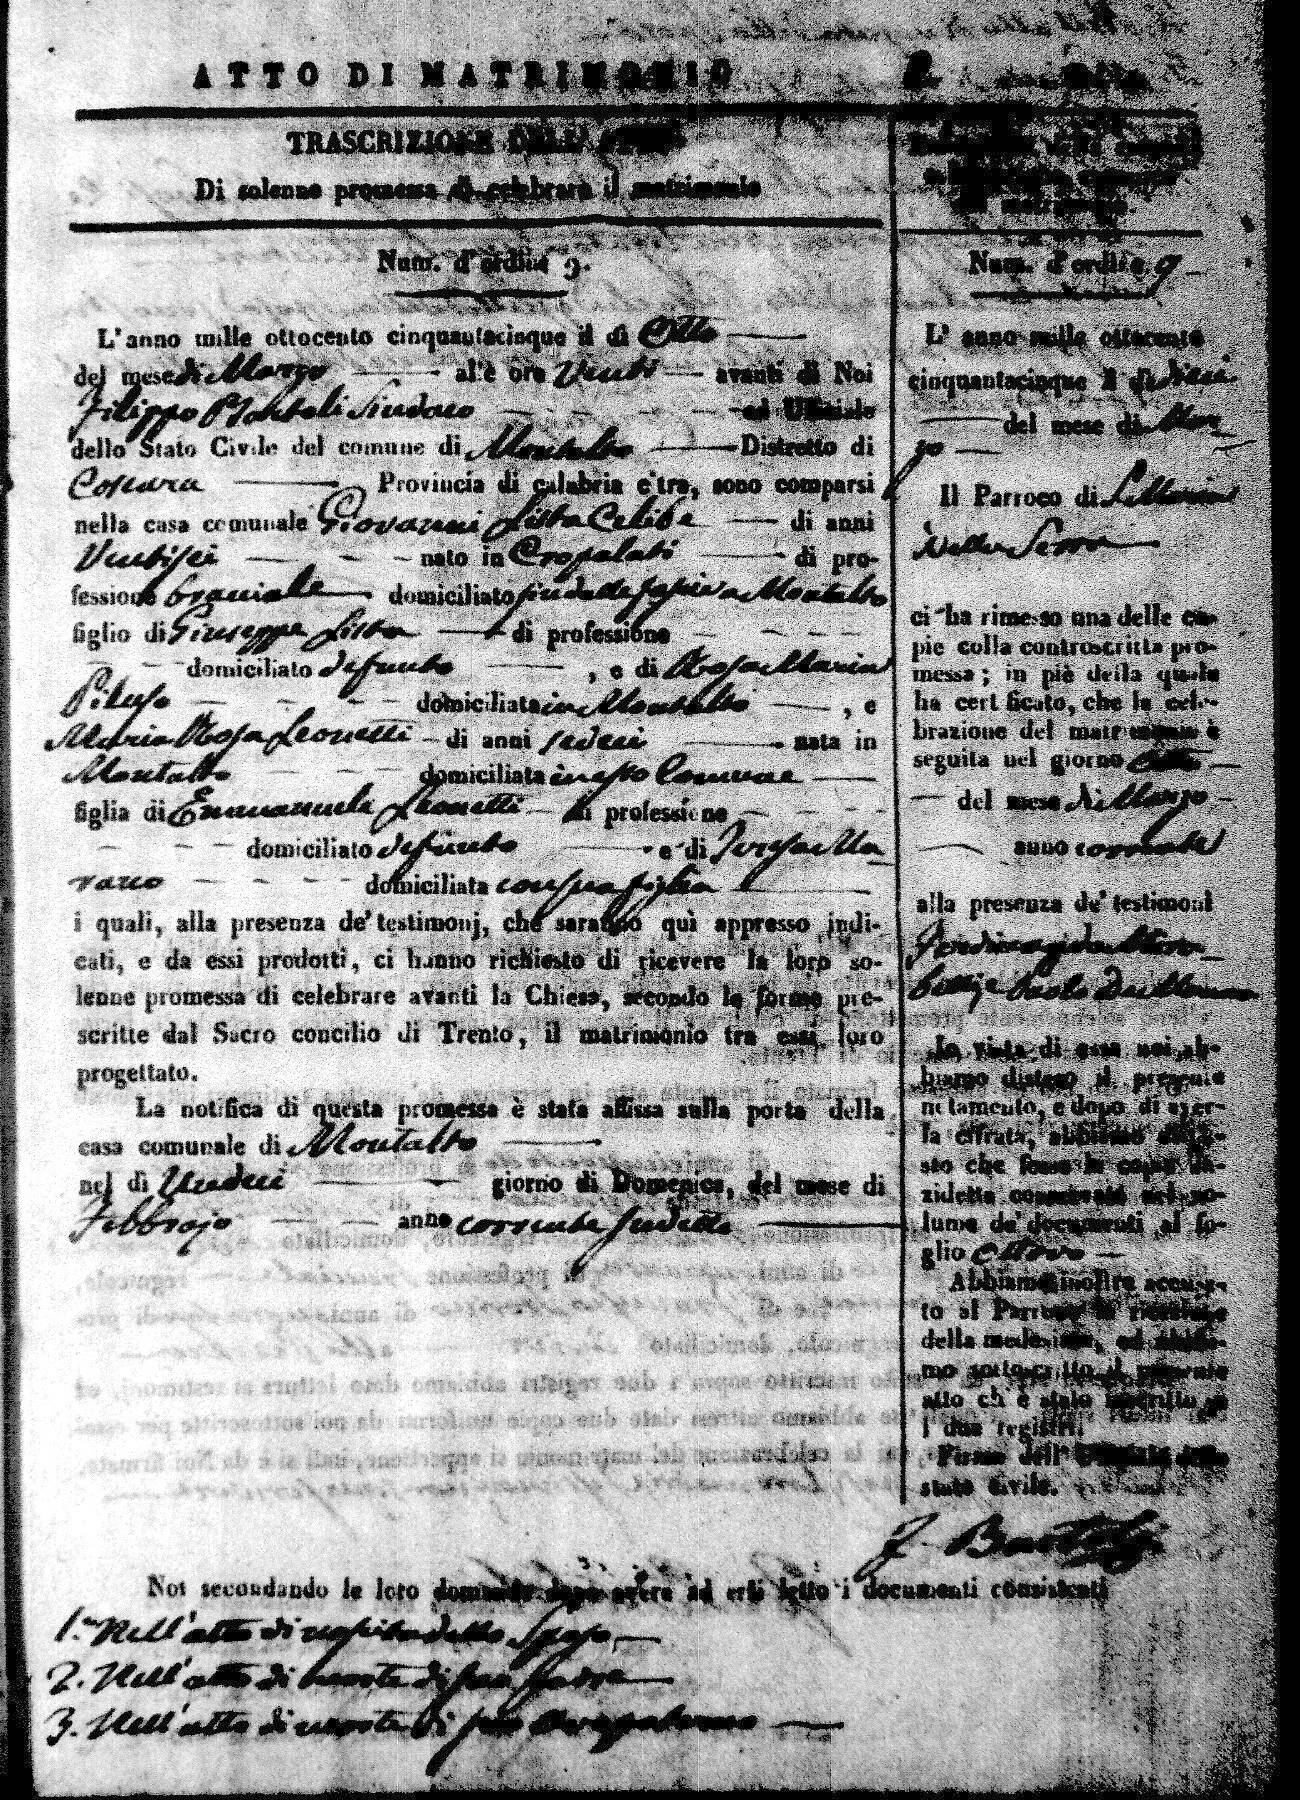 ATTO DI MATRIMONIO
TRASCRIZIONE DELL'
Di solenne promessa di celebrare il matrimonio
Num. d'ordine 9.
L'anno mille ottocento cinquantacinque il dì Otto
del mese di Marzo alle ore Venti avanti di Noi
Filippo Sindaco ed Uffiziale
dello Stato Civile del comune di Montalto Distretto di
Cosenza Provincia di calabria citra, sono comparsi
nella casa comunale Giovanni Lista Celibe di anni
Ventisei nato in Cropalati di pro-
fessione bracciale domiciliato Montalto
figlio di Giuseppe Lista di professione
domiciliato defunto, e di Rosa Maria
domiciliata in Montalto, e
Maria Rosa Leonetti di anni sedeci nata in
Montalto domiciliata in esso Comune
figlia di Emmanuele Leonetti di professione
domiciliato defunto e di Teresa
domiciliata con sua figlia
i quali, alla presenza de' testimonj, che saranno quì appresso indi-
cati, e da essi prodotti, ci hanno richiesto di ricevere la loro so-
lenne promessa di celebrare avanti la Chiesa, secondo le forme pre-
scritte dal Sacro concilio di Trento, il matrimonio tra essi loro
progettato.
La notifica di questa promessa è stata affissa sulla porta della
casa comunale di Montalto
nel dì Undeci giorno di Domenica, del mese di
Febbrajo anno corrente sudetto
Num. d'ordine 9
L' anno mille ottocento
cinquantacinque il dì dieci
del mese di Mar-
zo
Il Parroco di S. Maria
della Serra
ci ha rimesso una delle co-
pie colla controscritta pro-
messa; in piè della quale
ha certificato, che la cele-
brazione del matrimonio è
seguita nel giorno otto
del mese di Marzo
anno corrente
alla presenza de' testimoni
In vista di essa noi ab-
biamo disteso il presente
notamento, e dopo di aver-
la cifrata, abbiamo dispo-
sto che fosse la copia an-
zidetta conservata nel vo-
lume de' documenti al fo-
glio ottavo
Abbiamo inoltre accusa-
to al Parroco la ricezione
della medesima, ed abbia-
mo sottoscritto il presente
atto ch' è stato inscritto su
i due registri.
Firma dell' Uffiziale dello
stato civile.
Noi secondando le loro domande dopo avere ad essi letto i documenti consistenti
1.° Nell'atto di nascita dello Sposo
2. Nell'atto di morte di suo padre
3. Nell'atto di morte di suo avo paterno